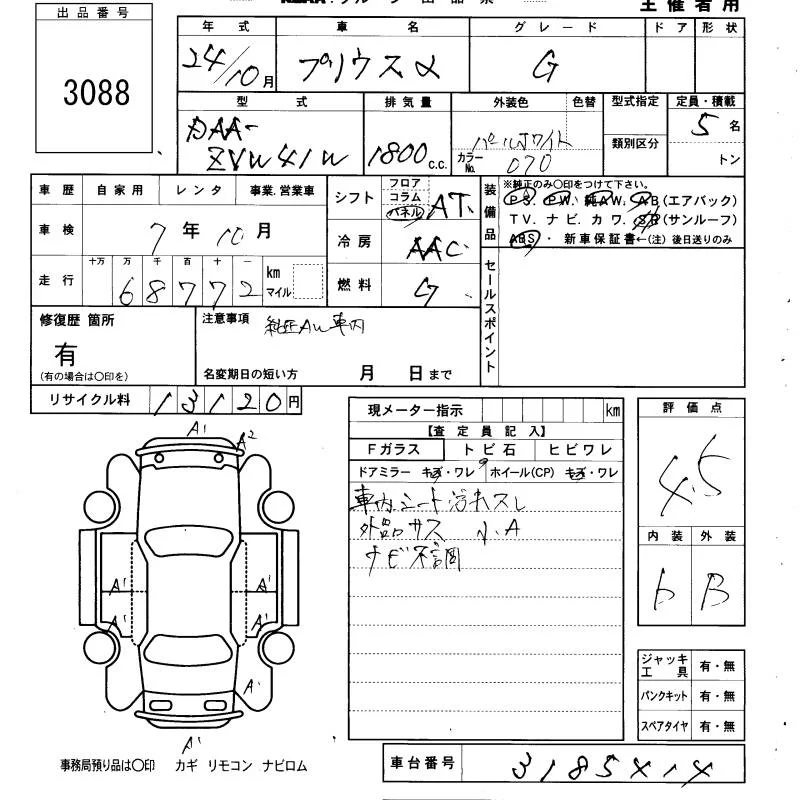 出品番号
3088
主催者用
年式 車名 グレード ドア 形状
24/10月 プリウスα G
型式 排気量 外装色 色替 型式指定 定員・積載
DAA-
ZVW41W 1800c.c. パールホワイト 5名
カラーNo. 070 類別区分 トン
車歴 自家用 レンタ 事業.営業車
シフト フロア コラム パネル AT
装備品 ※純正のみ〇印をつけて下さい。
PS. PW. 純AW. AB(エアバック)
TV. ナビ. カワ. SR(サンルーフ)
ABS・ 新車保証書←(注) 後日送りのみ
車検 7年10月
冷房 AAC
走行 十万 万 千 百 十 一 km マイル
68772
燃料 G
セールスポイント
修復歴 箇所
有
(有の場合は〇印を)
注意事項 純正AW車内
名変期日の短い方 月 日まで
リサイクル料 13120円
現メーター指示 km
評価点
4.5
【査定員記入】
Fガラス トビ石 ヒビワレ
ドアミラー キズ・ワレ ホイール(CP) キズ・ワレ
車内シート汚れスレ
外品サス
ナビ不調
内装 外装
b B
A1 A2
A1 A1
A1 A1
A1
A1
ジャッキ工具 有・無
パンクキット 有・無
スペアタイヤ 有・無
事務局預り品は〇印 カギ リモコン ナビロム
車台番号 3185414